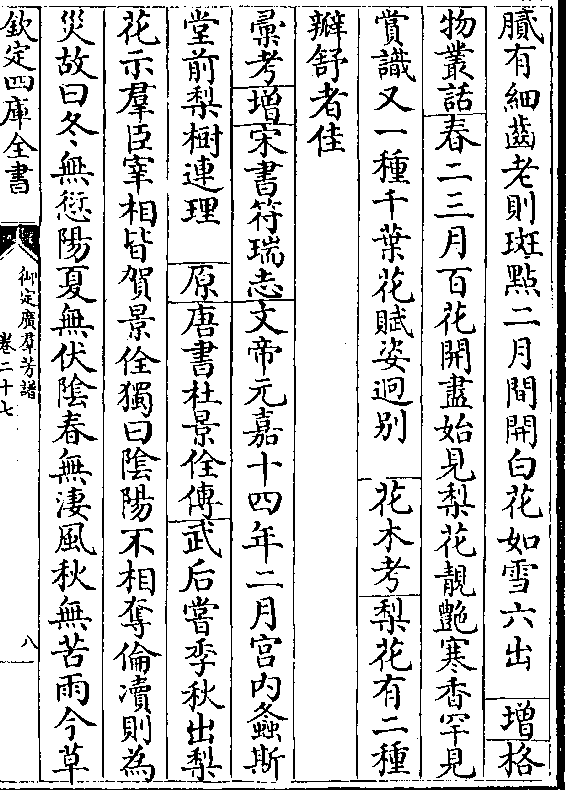 膩有細齒老則斑點二月間開白花如雪六出　增格
物叢話春二三月百花開盡始見梨花靚艷寒香罕見
賞識又一種千葉花賦姿迥别　花木考梨花有二種
瓣舒者佳
彚考增宋書符瑞志文帝元嘉十四年二月宫内螽斯
堂前梨樹連理　原唐書杜景佺傳武后嘗季秋出梨
花示羣臣宰相皆賀景佺獨曰隂陽不相奪倫凟則為
災故曰冬無愆陽夏無伏隂春無淒風秋無苦雨今草
欽定四庫全書
御定廣羣芳譜
卷二十七
八